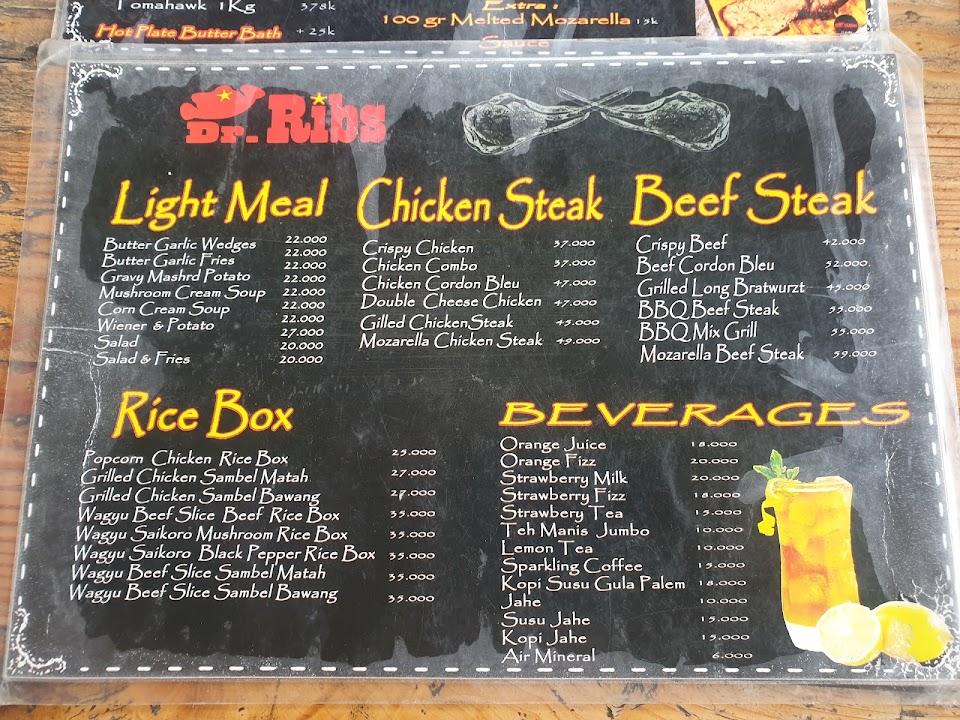 Tomahawk 1Kg 378k
Hot Plate Butter Bath + 25k
Extra :
100 gr Melted Mozarella 15k
Sauce
Dr. Ribs
Light Meal
Butter Garlic Wedges 22.000
Butter Garlic Fries 22.000
Gravy Mashrd Potato 22.000
Mushroom Cream Soup 22.000
Corn Cream Soup 22.000
Wiener & Potato 22.000
Salad 27.000
Salad & Fries 20.000
20.000
Chicken Steak
Crispy Chicken 37.000
Chicken Combo 37.000
Chicken Cordon Bleu 47.000
Double Cheese Chicken 47.000
Gilled ChickenSteak 45.000
Mozarella Chicken Steak 49.000
Beef Steak
Crispy Beef 42.000
Beef Cordon Bleu 52.000
Grilled Long Bratwurzt 45.000
BBQ Beef Steak 55.000
BBQ Mix Grill 55.000
Mozarella Beef Steak 59.000
Rice Box
Popcorn Chicken Rice Box 25.000
Grilled Chicken Sambel Matah 27.000
Grilled Chicken Sambel Bawang 27.000
Wagyu Beef Slice Beef Rice Box 35.000
Wagyu Saikoro Mushroom Rice Box 35.000
Wagyu Saikoro Black Pepper Rice Box 35.000
Wagyu Beef Slice Sambel Matah 35.000
Wagyu Beef Slice Sambel Bawang 35.000
BEVERAGES
Orange Juice 18.000
Orange Fizz 20.000
Strawberry Milk 20.000
Strawberry Fizz 18.000
Strawbery Tea 15.000
Teh Manis Jumbo 10.000
Lemon Tea 10.000
Sparkling Coffee 15.000
Kopi Susu Gula Palem 18.000
Jahe 10.000
Susu Jahe 15.000
Kopi Jahe 15.000
Air Mineral 6.000